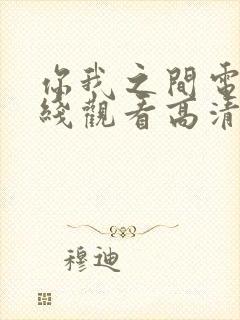 你我之間電
綫觀看高清
穆迪